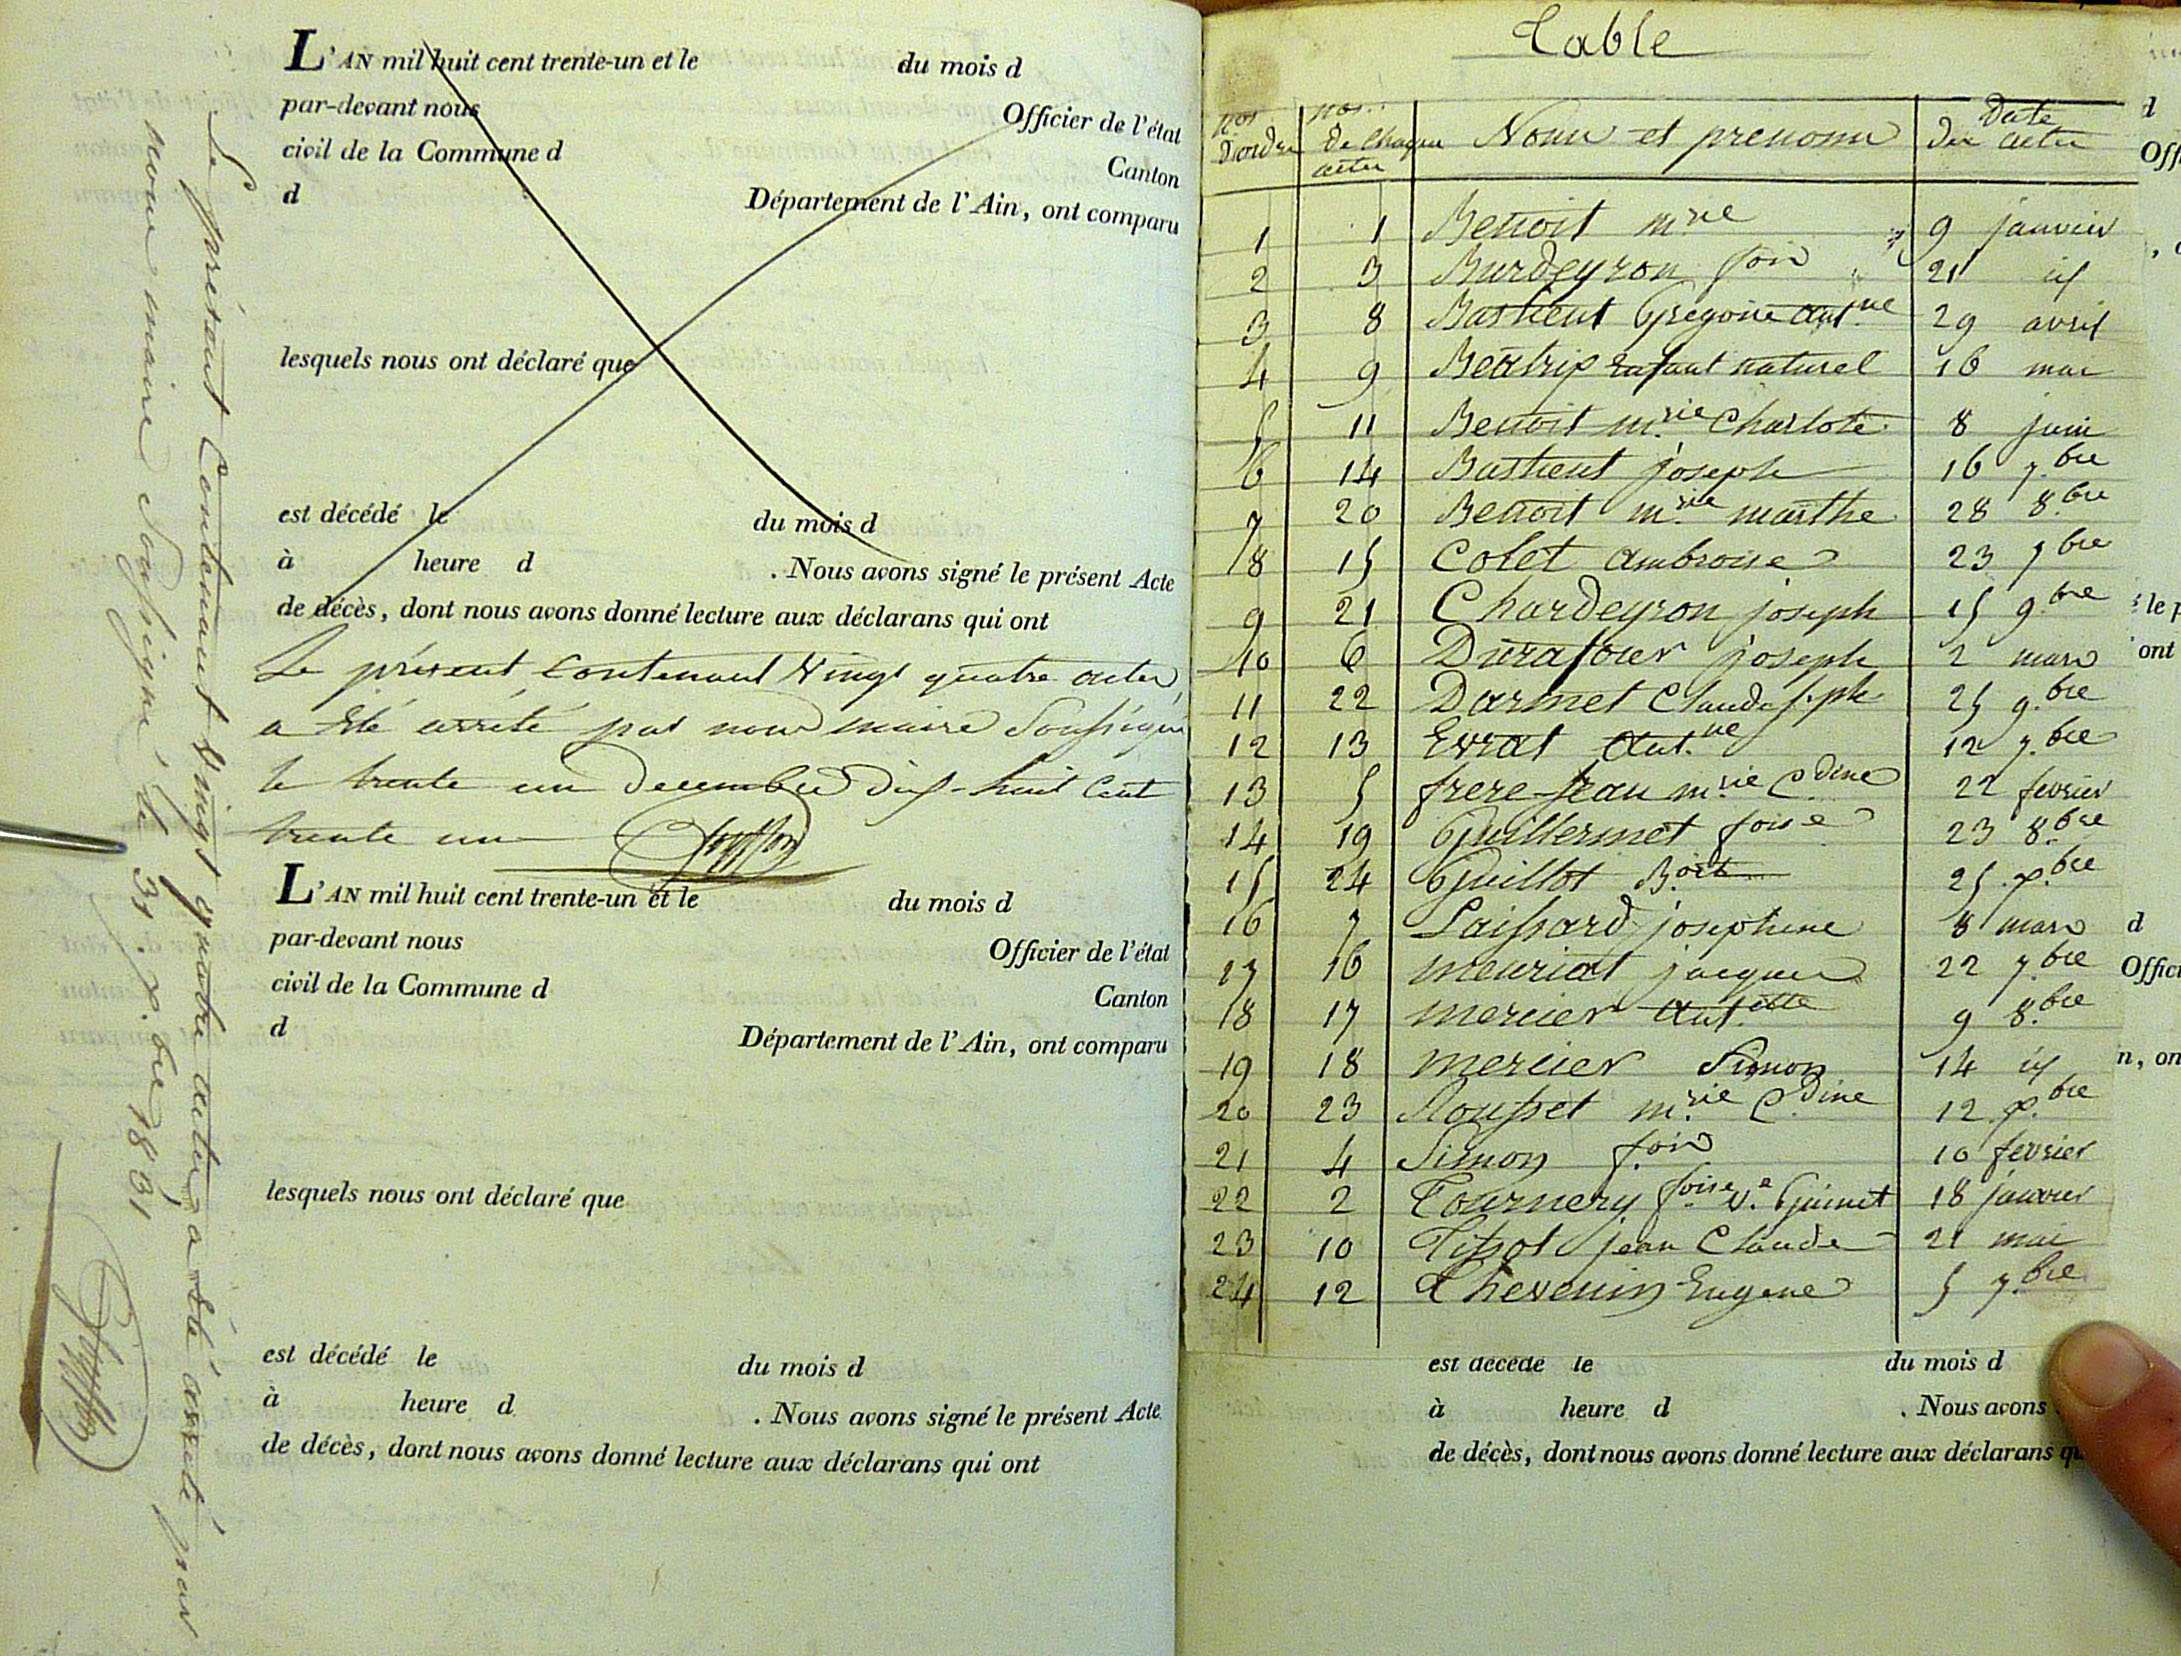 L'AN mil huit cent trente-un et le du mois d
par-devant nous Officier de l'état
civil de la Commune d Canton
d Département de l'Ain, ont comparu
lesquels nous ont déclaré que
est décédé le du mois d
à heure d . Nous avons signé le présent Acte
de décès, dont nous avons donné lecture aux déclarans qui ont
Le présent Contenant Vingt quatre actes,
a Eté arrêté par nous maire Soussigné
le trente un Decembre dix-huit Cent
trente un
L'AN mil huit cent trente-un et le du mois d
par-devant nous Officier de l'état
civil de la Commune d Canton
d Département de l'Ain, ont comparu
lesquels nous ont déclaré que
est décédé le du mois d
à heure d . Nous avons signé le présent Acte
de décès, dont nous avons donné lecture aux déclarans qui ont
Le présent Contenant Vingt quatre actes a Eté arreté par
nous maire Soussigné le 31 x.bre 1831
Table
nos D'ordre nos. De Chaque actes Noms et prenoms Date Des actes
1 1 Benoit m rie 9 janvier
2 3 Burdeyron fois 21 id
3 8 Bastient Gregoire Ant.ne 29 avril
4 9 Beatrix Enfant naturel 16 mai
5 11 Benoit m.rie Charlote 8 juin
6 14 Bastient joseph 16 7.bre
7 20 Benoit m.rie marthe 28 8.bre
8 15 Colet Ambroise 23 7bre
9 21 Chardeyron joseph 15 9.bre
10 6 Durafour joseph 2 mars
11 22 Darmet Claude j.ph 25 9.bre
12 13 Evrat Ant.ne 12 7.bre
13 5 frere Jean m.rie C.dine 22 fevrier
14 19 Guillermet foise 23 8.bre
15 24 Guillot B.oit 25 x.bre
16 7 Laissard josephine 8 mars
17 16 meuriat jacques 22 7.bre
18 17 mercier Ant.ette 9 8.bre
19 18 mercier Simon 14 id
20 23 Rousset m.rie C.dine 12 x.bre
21 4 Simon f.ois 10 fevrier
22 2 Tournery f.oise v.e Guinet 18 janvier
23 10 Tissot jean Claude 21 mai
24 12 Thevenin Eugene 5 7.bre
est décédé le du mois d
à heure d . Nous avons
de décès, dont nous avons donné lecture aux déclarans
d
le
ont
d
n, on